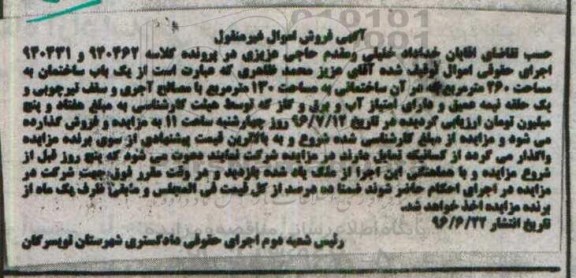 آگهی فروش اموال غیرمنقول
حسب تقاضای آقایان خداداد خلیلی ومقدم حاجی عزیزی در پرونده کلاسه ۹۴۰۴۶۲ و ۹۴۰۳۳۱
اجرای حقوقی اموال توقیف شده آقای عزیز محمد ظاهری که عبارت است از یک باب ساختمان به
مساحت ۲۶۰ مترمربع که در آن ساختمانی به مساحت ۱۳۰ مترمربع با مصالح آجری و سقف تیرچوبی و
یک حلقه نیمه عمیق و دارای امتیاز آب و برق و گاز که توسط هیئت کارشناسی به مبلغ هفتاد و پنج
میلیون تومان ارزیابی گردیده در تاریخ ۹۶/۷/۱۲ روز چهارشنبه ساعت ۱۱ به مزایده و فروش گذارده
می شود و مزایده از مبلغ کارشناسی شده شروع و به بالاترین قیمت پیشنهادی از سوی برنده مزایده
واگذار می گردد از کسانیکه تمایل دارند در مزایده شرکت نمایند دعوت می شود که پنج روز قبل از
شروع مزایده و با هماهنگی این اجرا از ملک یاد شده بازدید و در وقت مقرر فوق جهت شرکت در
مزایده در اجرای احکام حاضر شوند ضمنا ده درصد از کل قیمت فی المجلس و مابقی ظرف یک ماه از
برنده مزایده اخذ خواهد شد.
تاریخ انتشار ۹۶/۶/۲۲
رئیس شعبه دوم اجرای حقوقی دادگستری شهرستان تویسرکان